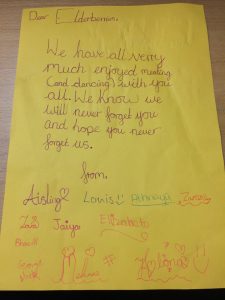 Dear Elderberries,
We have all verry
much enjoyed meeting
(and dancing) with you
all. We know we
will never forget you
and hope you never
forget us.
from,
Aisling Louis
Zara Jaiya Elizabeth